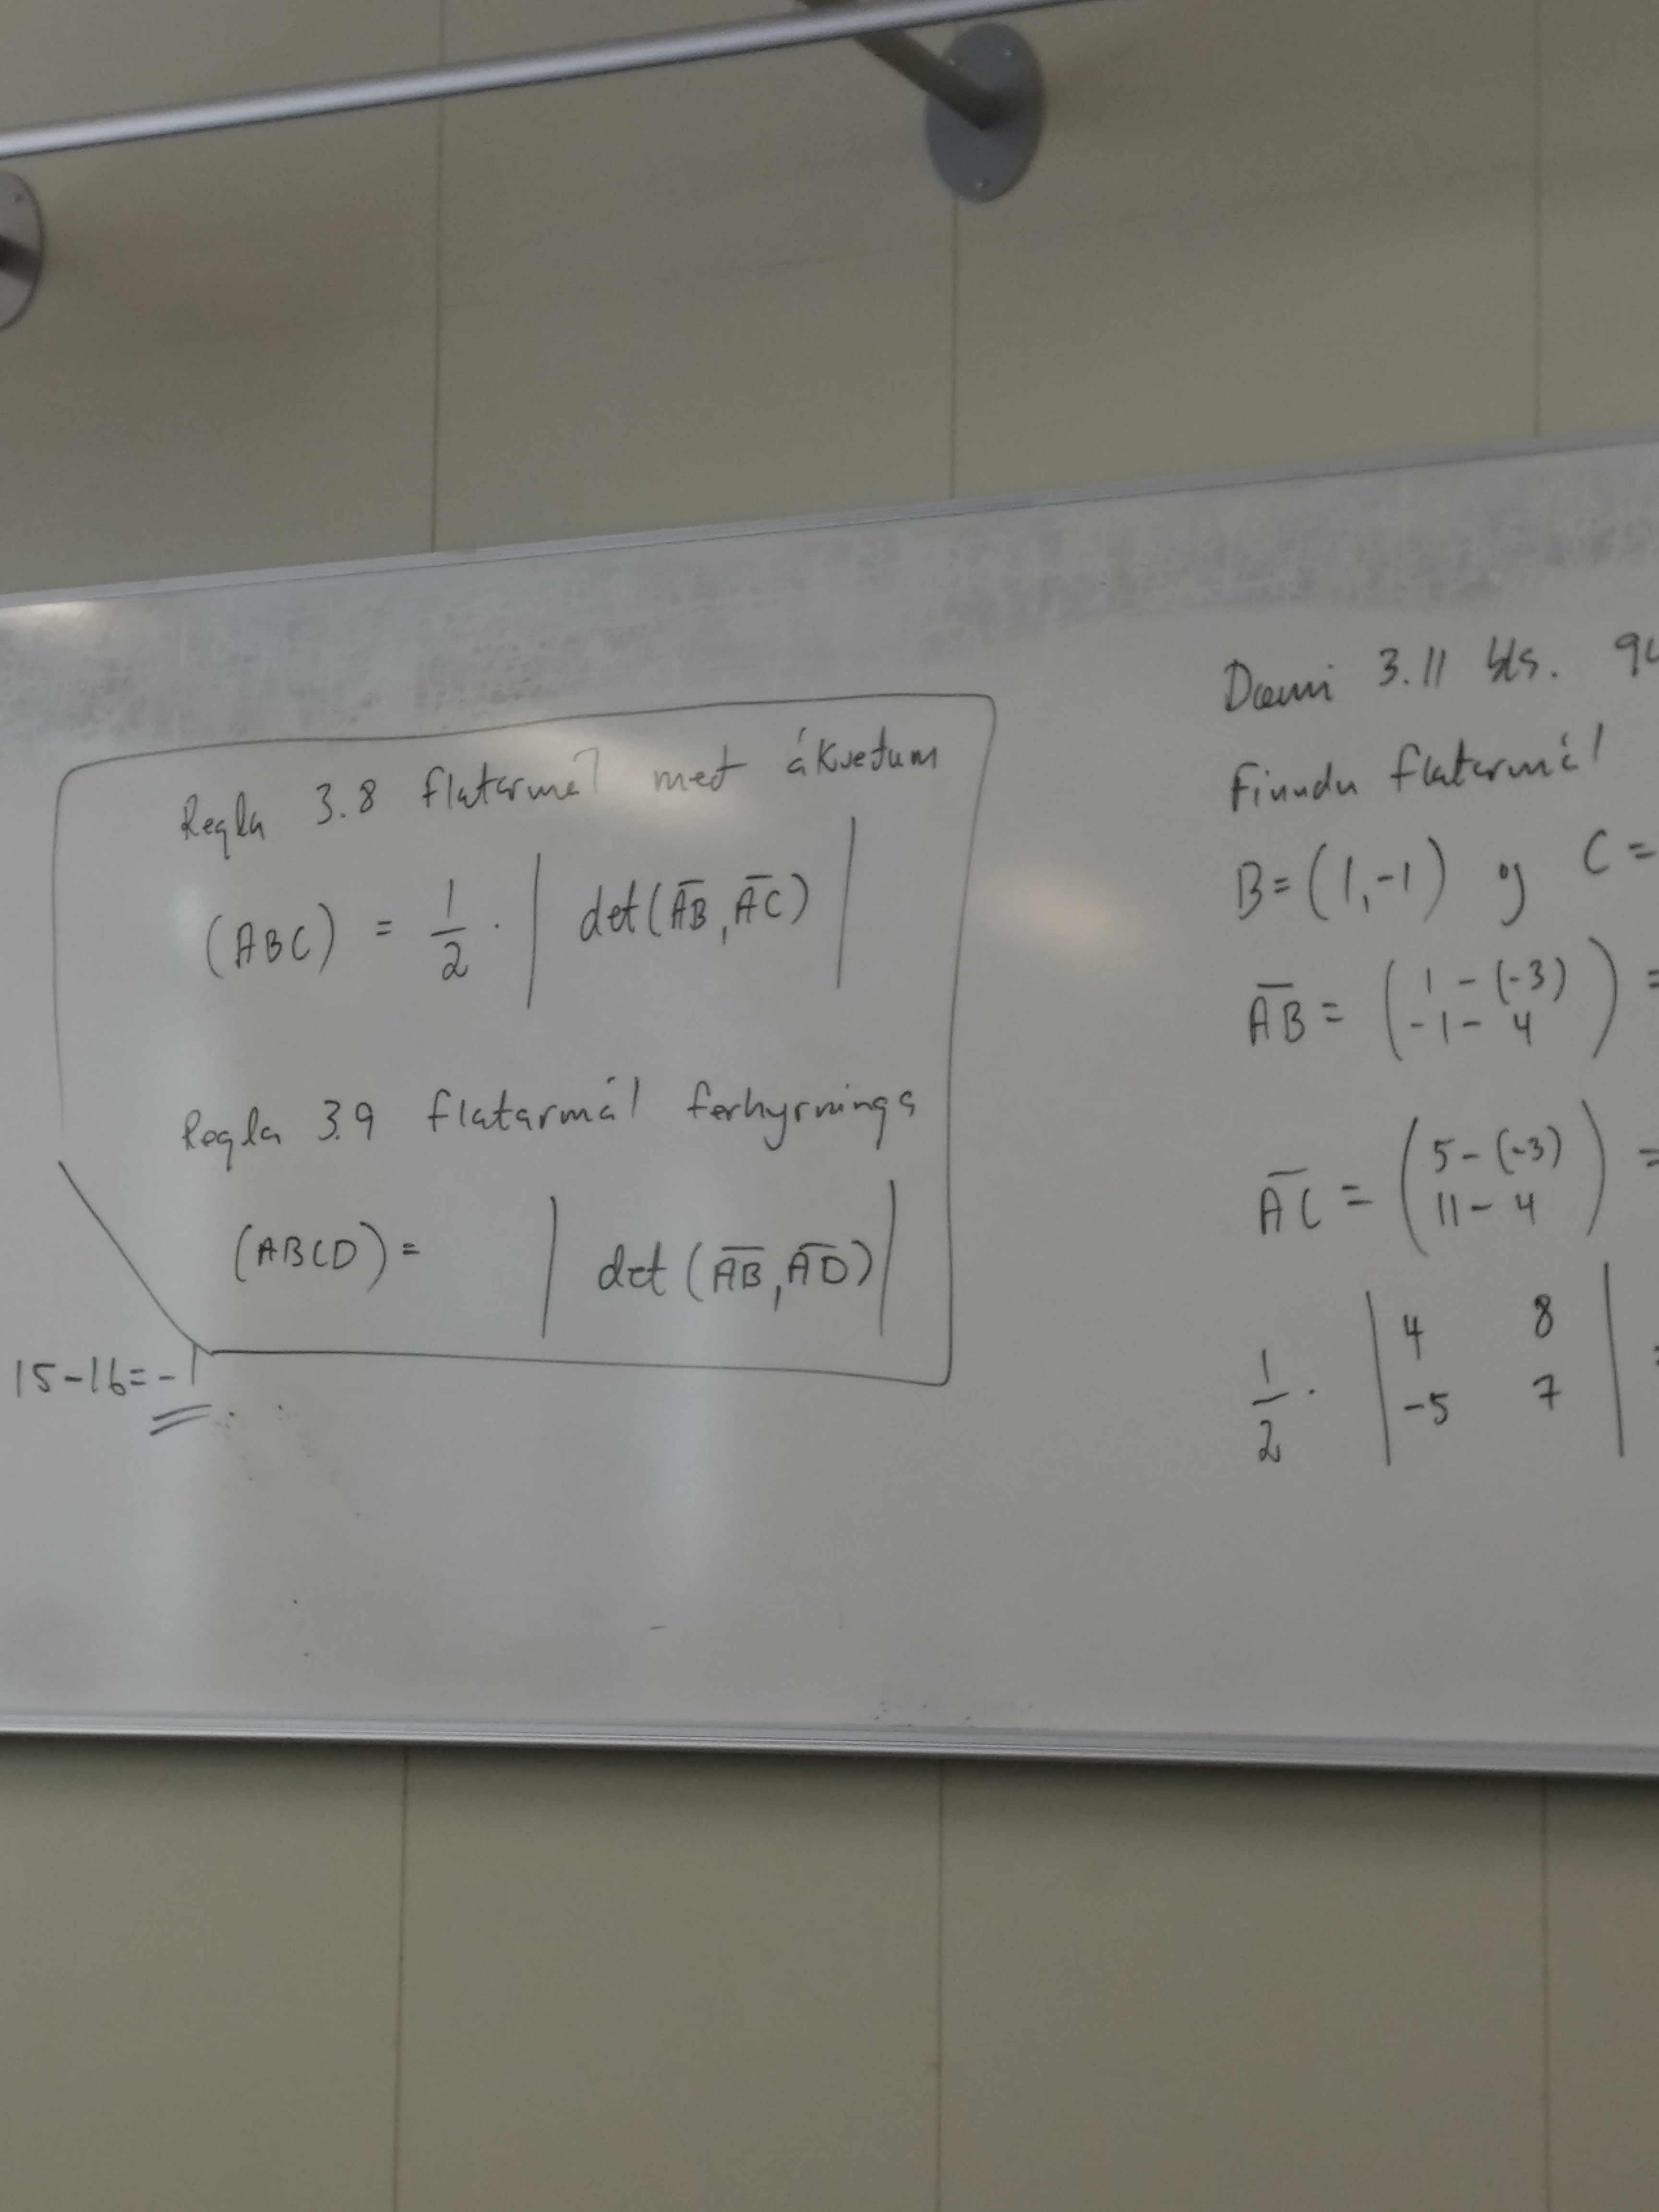 Regla 3.8 flatarmál með ákveðum
(ABC) = 1/2 · | det(AB̅, AC̅) |
Regla 3.9 flatarmál ferhyrnings
(ABCD) = | det(AB̅, AD̅) |
15-16=-1
Dæmi 3.11 bls. 94
Finndu flatarmál
B=(1,-1) og C =
AB̅ = ( 1 - (-3) ) =
-1 - 4
AC̅ = ( 5 - (-3) ) =
11 - 4
1/2 · | 4 8 | =
-5 7